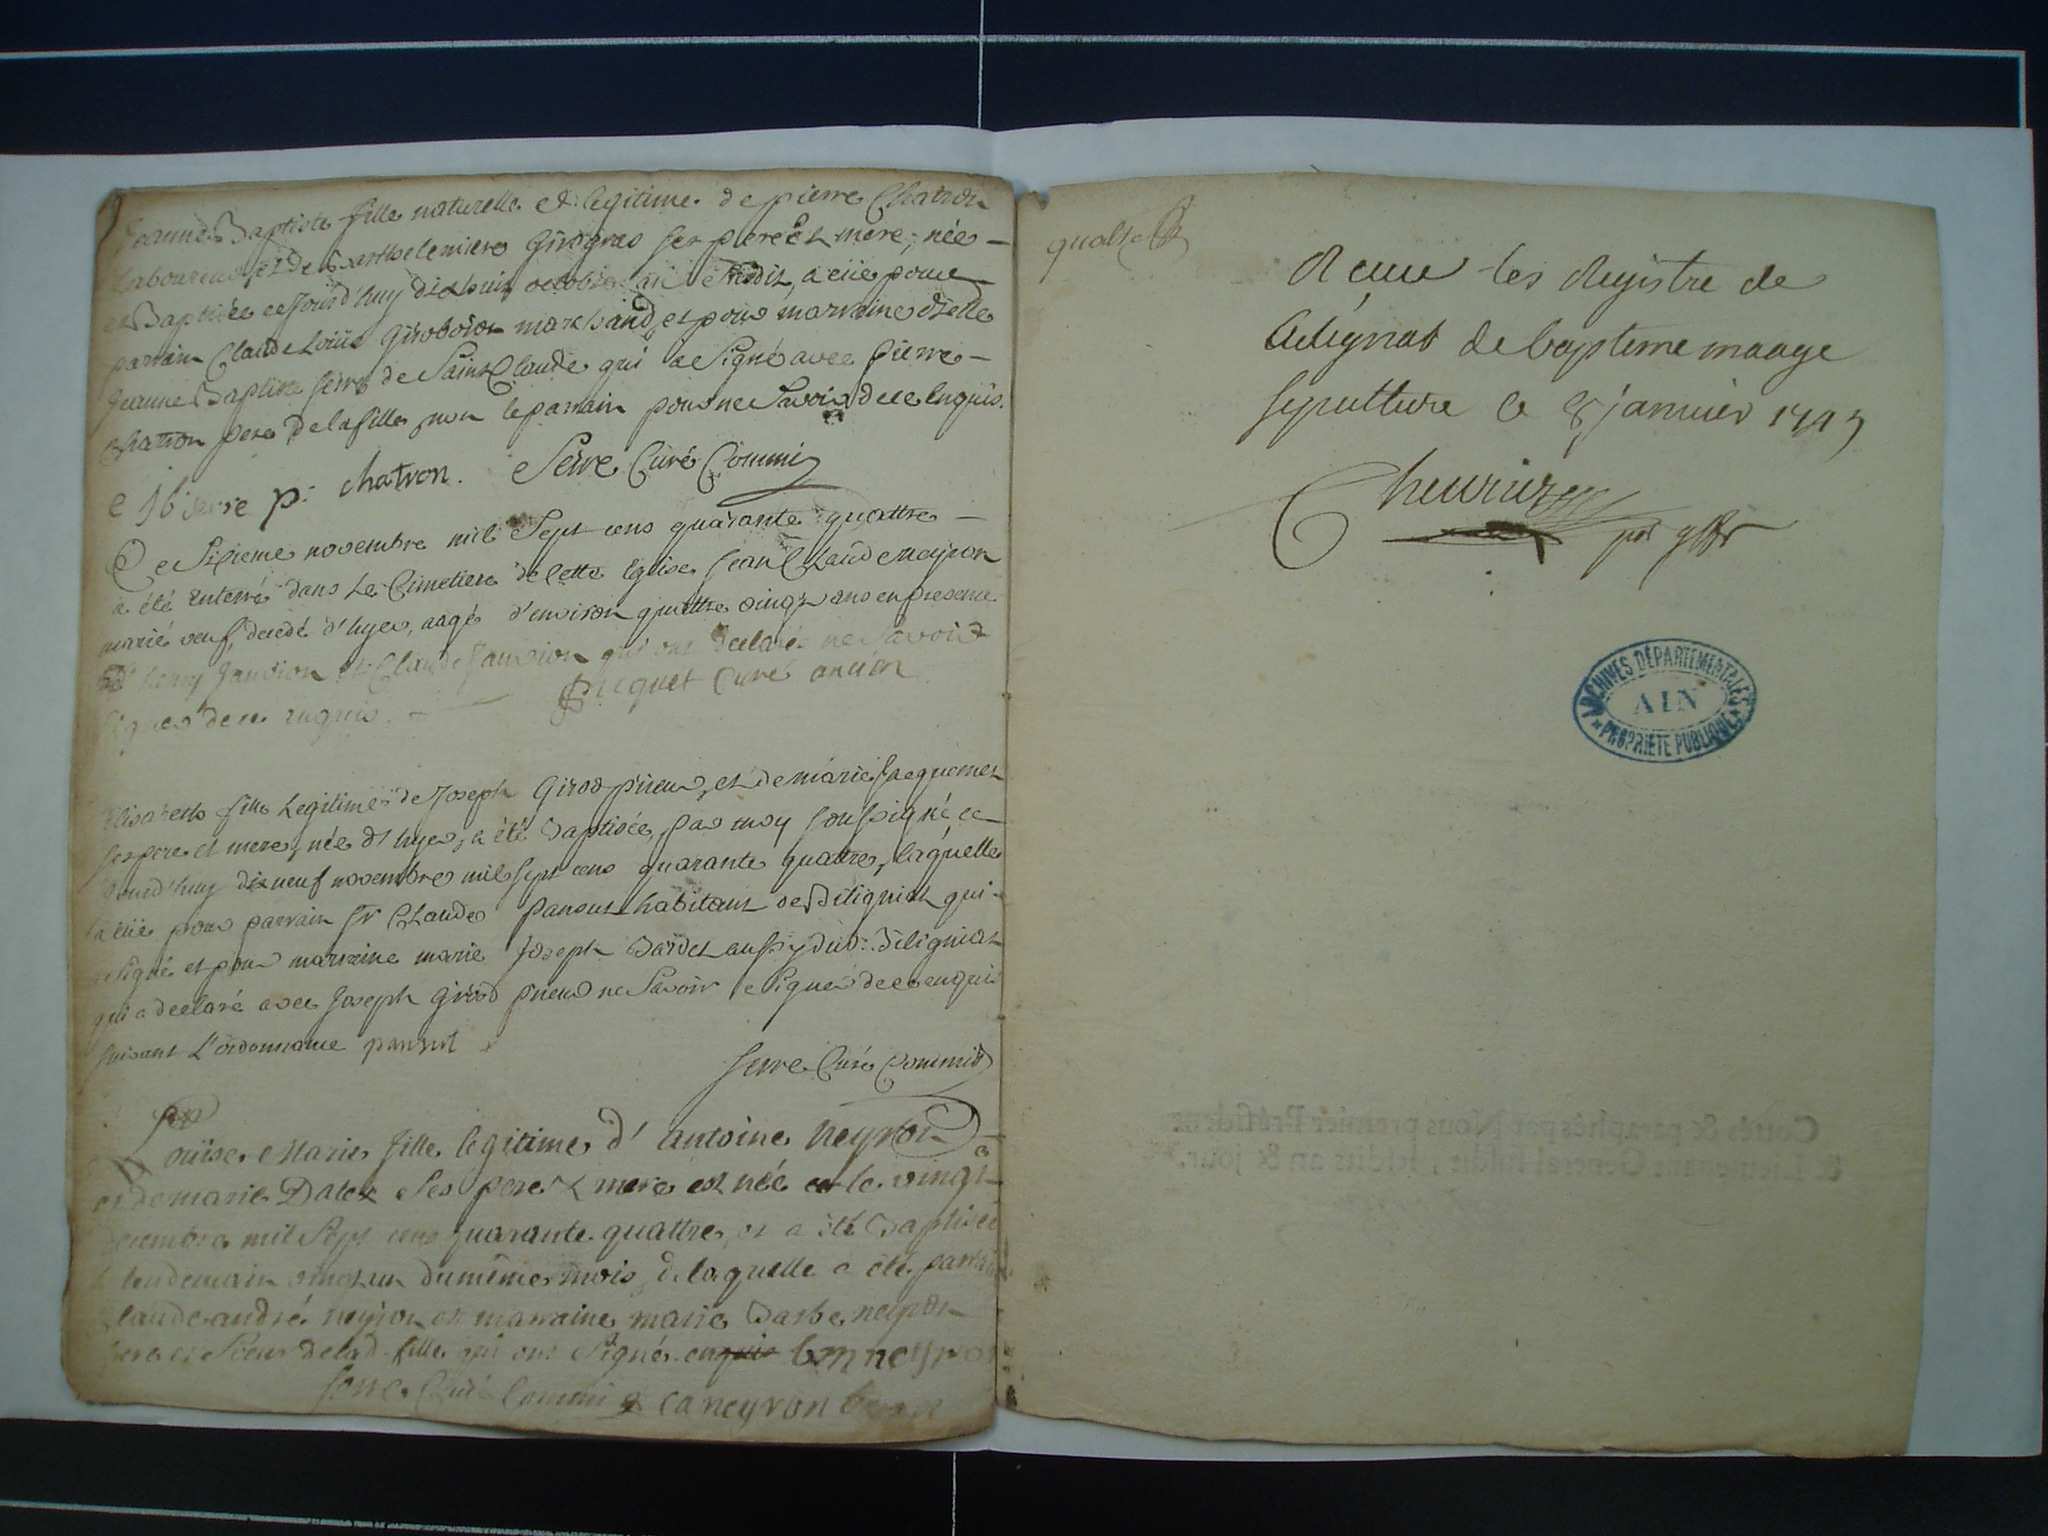 Jeanne Baptiste fille naturelle et legitime de pierre Chatron
Laboureur et de Barthelemiere Girogras ses pere et mere, née
et Baptisée ce Jourd'huy dixhuit octobre an dit, a eue pour
parrain Claude Loüis marchand, et pour marraine dlle
Jeanne Baptiste serre de Saint Claude qui a Signé avec pierre
Chatron pere de la fille, non le parrain pour ne Savoir de ce Enquis.
serre p: chatron. Serre Curé Commis
Ce Sixieme novembre mil Sept cens quarante quattre
a été Enterré dans Le Cimetiere de cette Eglise Jean Claude neyron
marié veuf, decedé d'hyer, aagé d'environ quattre vingt ans en presence
d'henry Janvion et Claude Janvion qui ont declaré ne Savoir
Signer de ce enquis. Picquet Curé ancien
Elisabeth fille Legitime de Joseph Girod prieur, et de marie Jacquemet
ses pere et mere, née d'hyer, a été Baptisée, par moy soussigné ce
Jourd'huy dixneuf novembre mil sept cens quarante quattre, laquelle
a eüe pour parrain Sr Claude panous habitant de Silignat qui
a signé et pour marraine marie Joseph Bardet aussy dud: Silignat
qui a declaré avec Joseph Girod prieur ne Savoir Signer de ce enquis
suivant L'ordonnance
Serre Curé Commis
Loüise Marie fille legitime d'antoine neyron
et de marie Dalex Ses pere & mere est née le vingt
decembre mil Sept cens quarante quattre, et a été Baptisée
le lendemain vingt un du même mois, de laquelle a été parrain
Claude andré neyron et marraine marie Barbe neyron
frere et Soeur de lad. fille qui ont Signés neyron
Serre Curé Commis ca neyron
Receue les Registre de
de bapteme mariage
sepulture le 8 janvier 1745
Cheurier
ARCHIVES DÉPARTEMENTALES
AIN
PROPRIÉTÉ PUBLIQUE
Cottés & paraphés par Nous premier Président
& Lieutenant General susdit, lesdits an & jour.